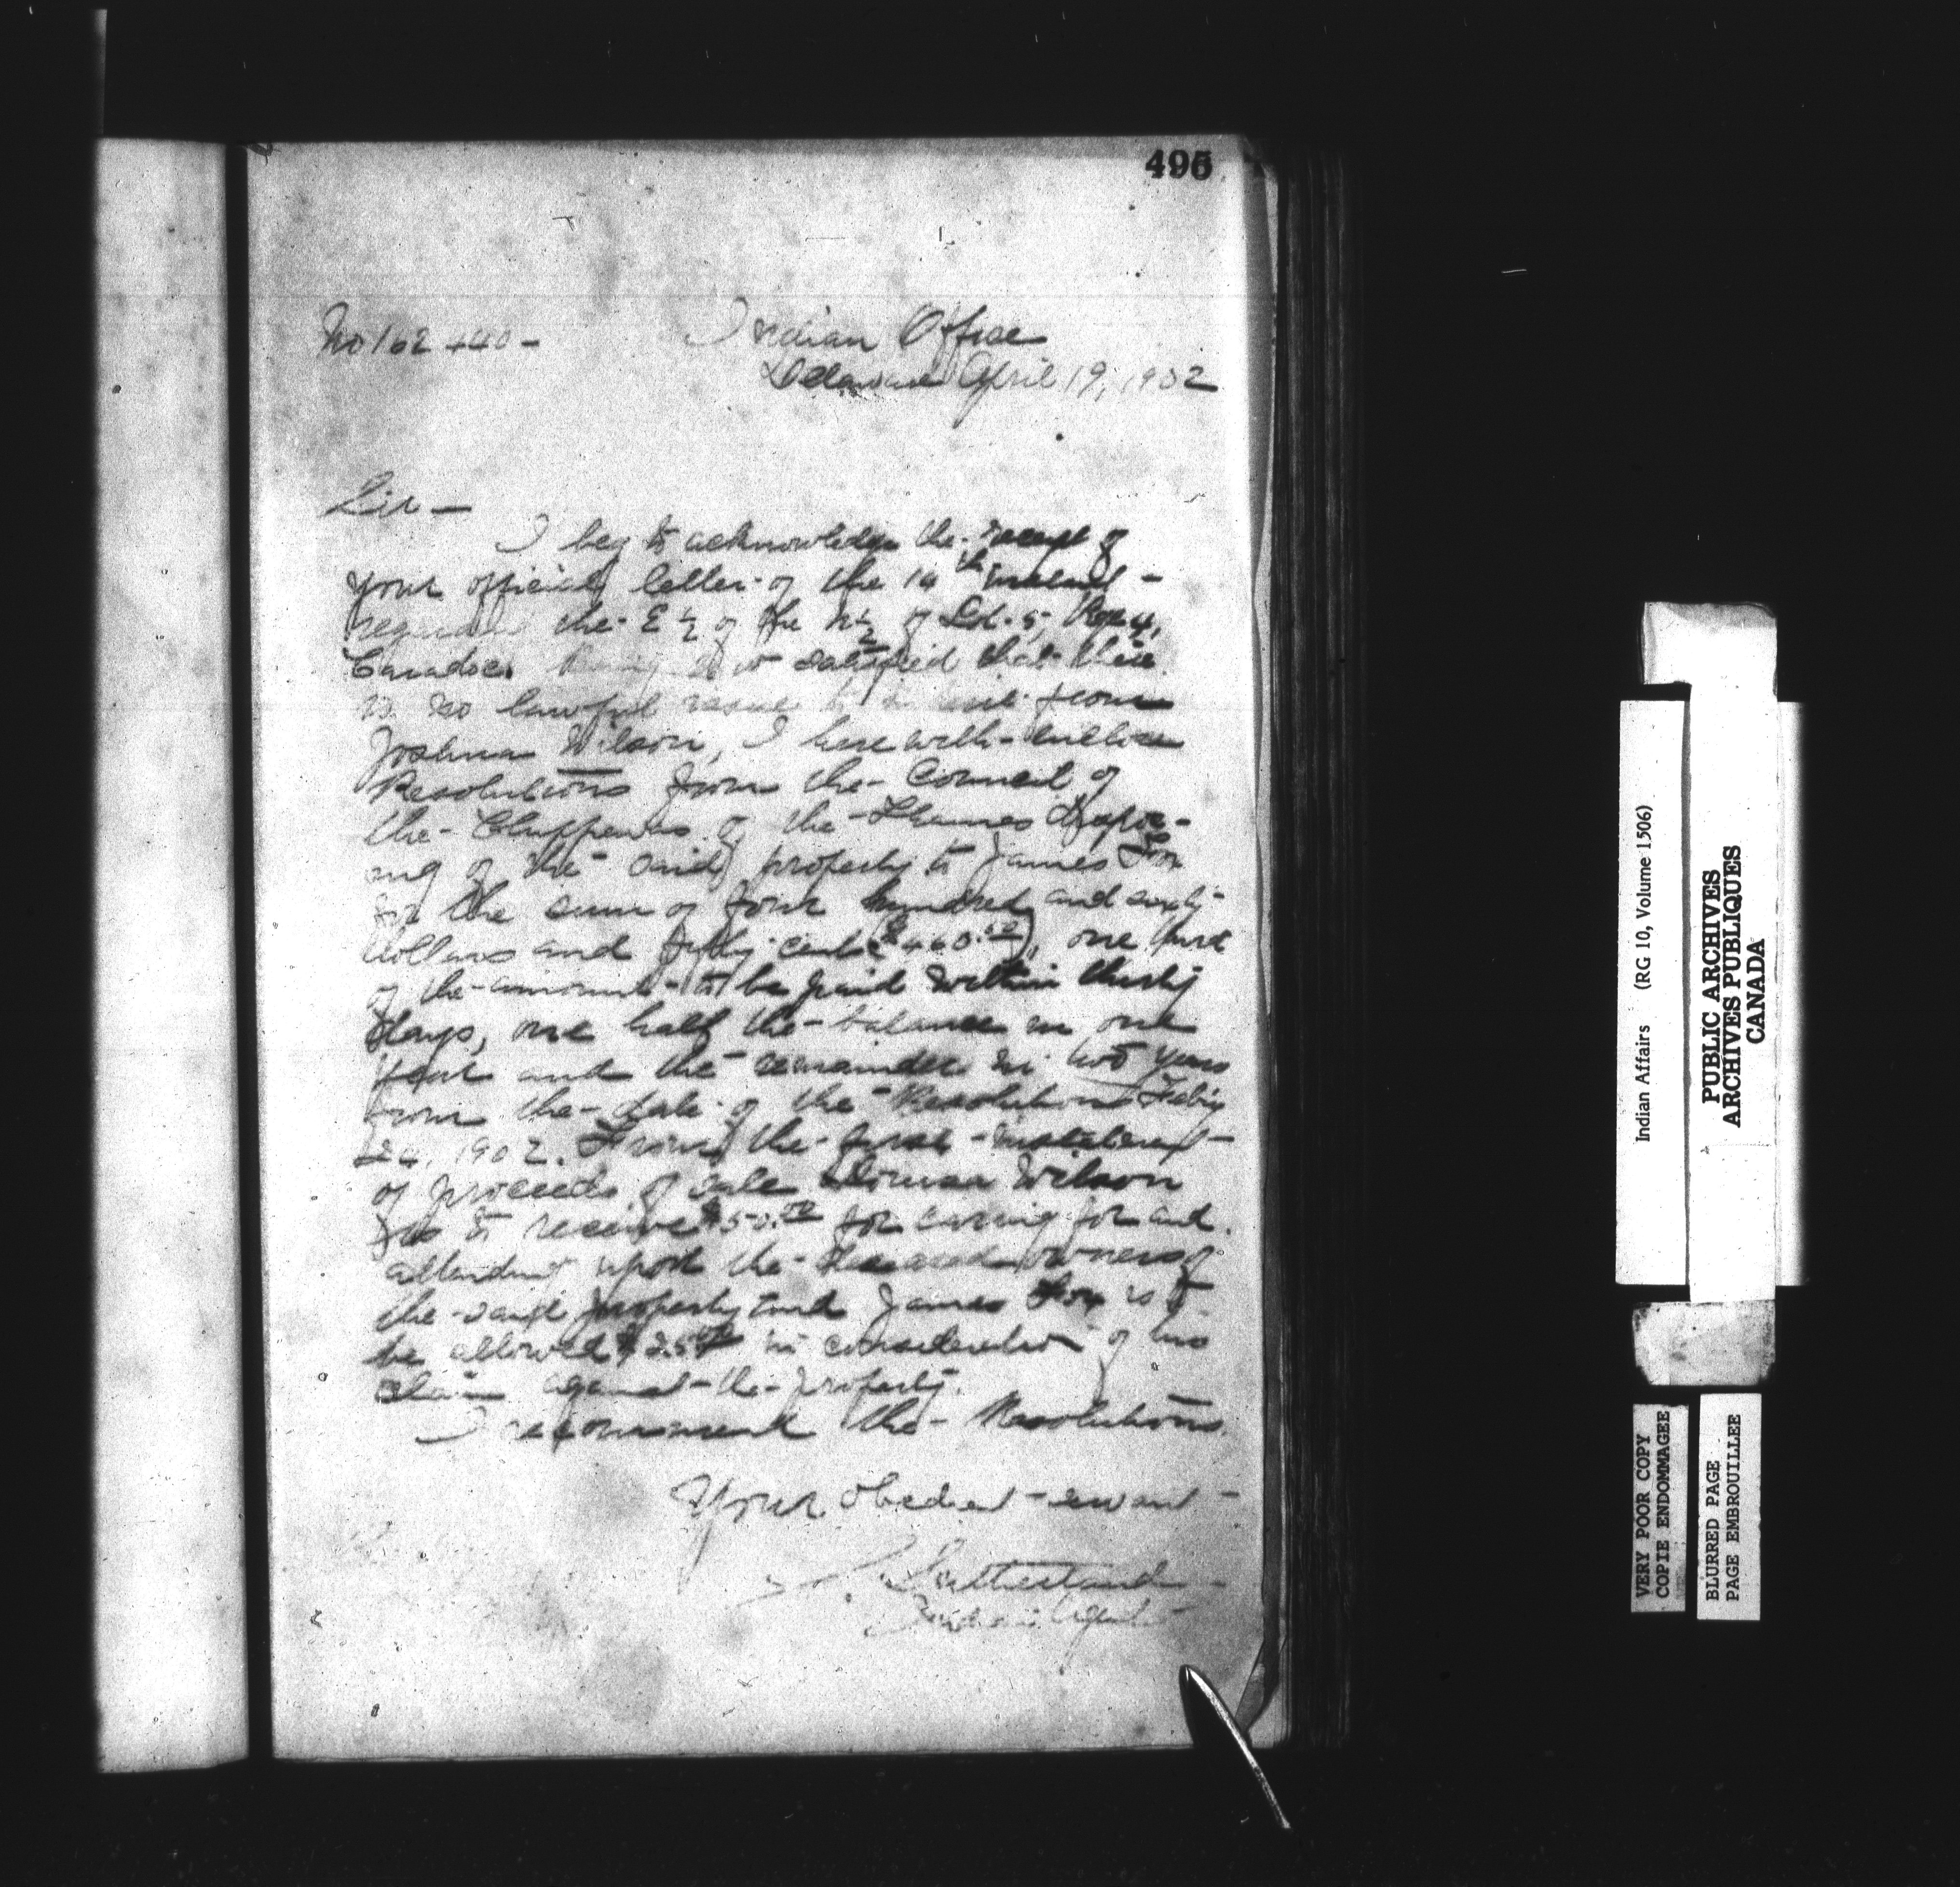 495
No 162 440 -
Indian Office
Delaware April 19, 1902
Sir -
I beg to acknowledge the receipt of
your official letter of the 14th instant -
regarding the E ½ of the N ½ of Lot 5, Rge 4,
Caradoc. satisfied that there
is no lawful issue from
Joshua Wilson, I herewith enclose
Resolutions from the Council of
the Chippewas of the Thames dispos-
ing of the said property to James Fox
for the sum of four hundred and sixty
dollars and fifty cents ($460.50), one third
of the amount to be paid within thirty
days, one half the balance in one
year and the remainder in two years
from the date of the Resolutions Feby
24, 1902. From the first instalment
of proceeds of sale Wilson
is to receive $50.00 for caring for and
attendance upon the deceased owners of
the said property and James Fox is to
be allowed $25.00 in consideration of his
claim against the property.
I recommend the Resolutions.
Your obedient servant -
S. Sutherland
Indian Agent
Indian Affairs (RG 10, Volume 1506)
PUBLIC ARCHIVES
ARCHIVES PUBLIQUES
CANADA
VERY POOR COPY
COPIE ENDOMMAGEE
BLURRED PAGE
PAGE EMBROUILLEE